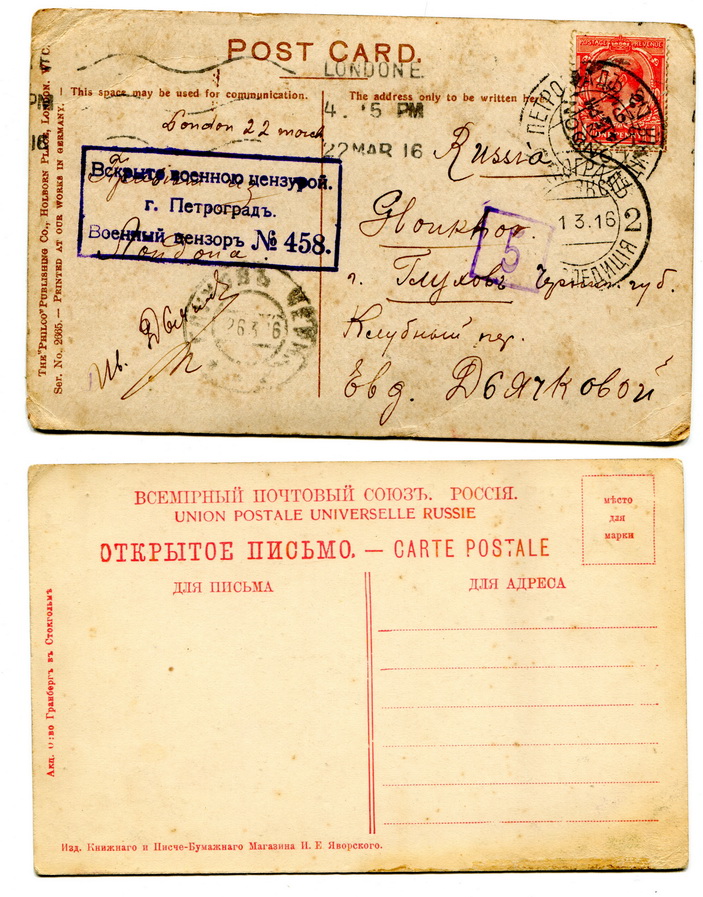 POST CARD.
LONDON E
This space may be used for communication.
The address only to be written here.
POSTAGE REVENUE
4. 15 PM
22 MAR 16
PM
16
London 22 march
Russia
Вскрыто военною цензурой.
г. Петроградъ.
Военный цензоръ № 458.
Лондона
5
1 3.16
2
г. Глуховъ Черниг. губ.
Клубный пер.
Евд. Дьячковой
26.3.16
Ив. Дьячков
THE "PHILCO" PUBLISHING CO., HOLBORN PLACE, LONDON. W. C.
Ser. No. 2665. — PRINTED AT OUR WORKS IN GERMANY.
ВСЕМІРНЫЙ ПОЧТОВЫЙ СОЮЗЪ. РОССІЯ.
UNION POSTALE UNIVERSELLE RUSSIE
ОТКРЫТОЕ ПИСЬМО. — CARTE POSTALE
мѣсто
для
марки
ДЛЯ ПИСЬМА
ДЛЯ АДРЕСА
Акц. О-во Гранбергъ въ Стокгольмѣ
Изд. Книжнаго и Писче-Бумажнаго Магазина И. Е Яворскаго.